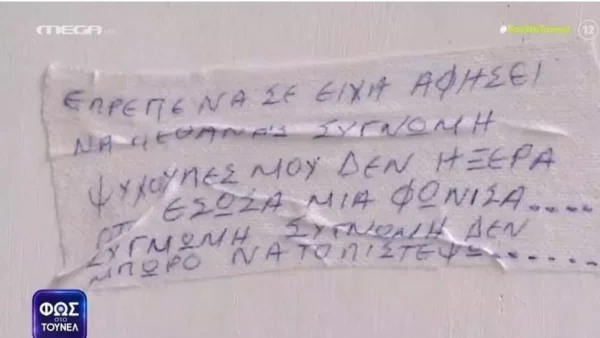 MEGA
#FosStoTounel
12
ΕΠΡΕΠΕ ΝΑ ΣΕ ΕΙΧΑ ΑΦΗΣΕΙ
ΝΑ ΠΕΘΑΝΑΣ ΣΥΓΝΩΜΗ
ΨΥΧΟΥΠΕΣ ΜΟΥ ΔΕΝ ΗΞΕΡΑ
ΟΤ ΕΣΩΣΑ ΜΙΑ ΦΩΝΙΣΑ.....
ΣΥΓΜΩΜΗ ΣΥΓΝΩΜΗ ΔΕΝ
ΜΠΩΡΟ ΝΑ ΤΟ ΠΙΣΤΕΨΩ.......
ΦΩΣ
στο
ΤΟΥΝΕΛ